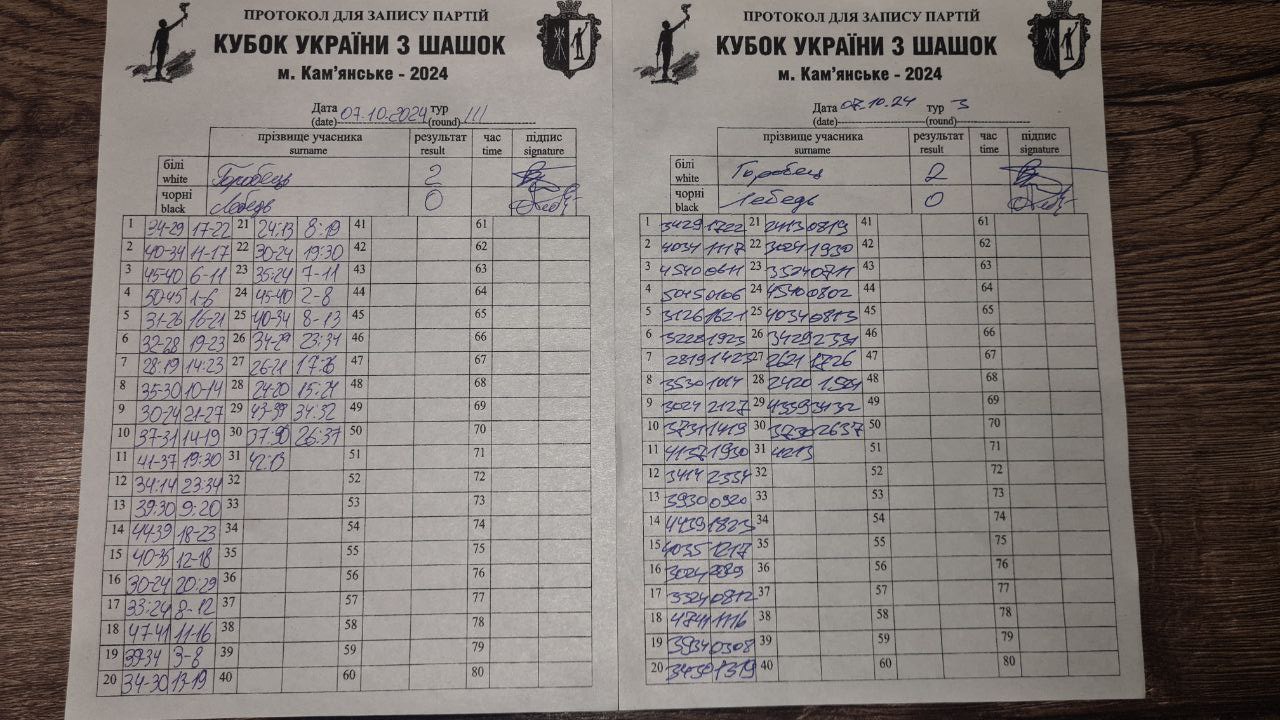 ПРОТОКОЛ ДЛЯ ЗАПИСУ ПАРТІЙ
КУБОК УКРАЇНИ З ШАШОК
м. Кам'янське - 2024
Дата 07.10.2024 тур III
(date) (round)
прізвище учасника результат час підпис
surname result time signature
білі Горобець 2
white
чорні Лебедь 0
black
1 34-29 17-22 21 24:13 8:19 41 61
2 40-34 11-17 22 30-24 19:30 42 62
3 45-40 6-11 23 35:24 7-11 43 63
4 50-45 1-6 24 45-40 2-8 44 64
5 31-26 16-21 25 40-34 8-13 45 65
6 32-28 19-23 26 34-29 23:34 46 66
7 28:19 14:23 27 26-21 17:26 47 67
8 35-30 10-14 28 24-20 15:24 48 68
9 30-24 21-27 29 43-39 34:32 49 69
10 37-31 14-19 30 26:37 50 70
11 41-37 19:30 31 42:13 51 71
12 34:14 23:34 32 52 72
13 39:30 9:20 33 53 73
14 44-39 18-23 34 54 74
15 40-35 12-18 35 55 75
16 30-24 20:29 36 56 76
17 33:24 8-12 37 57 77
18 47-41 11-16 38 58 78
19 39-34 3-8 39 59 79
20 34-30 13-19 40 60 80
ПРОТОКОЛ ДЛЯ ЗАПИСУ ПАРТІЙ
КУБОК УКРАЇНИ З ШАШОК
м. Кам'янське - 2024
Дата 07.10.24 тур 3
(date) (round)
прізвище учасника результат час підпис
surname result time signature
білі Горобец 2
white
чорні Лебедь 0
black
1 3429 1722 21 2413 0819 41 61
2 4034 1117 22 3024 1930 42 62
3 4540 0611 23 3524 0711 43 63
4 5045 0106 24 4540 0802 44 64
5 3126 1621 25 4034 0813 45 65
6 3228 1923 26 3429 2334 46 66
7 2819 1423 27 2621 1726 47 67
8 3530 1014 28 2420 1524 48 68
9 3024 2127 29 4339 3432 49 69
10 3731 1419 30 2637 50 70
11 4137 1930 31 4213 51 71
12 3414 2334 32 52 72
13 3930 0920 33 53 73
14 4439 1823 34 54 74
15 4035 1217 35 55 75
16 3024 2029 36 56 76
17 3324 0812 37 57 77
18 4741 1116 38 58 78
19 3934 0308 39 59 79
20 3430 1319 40 60 80